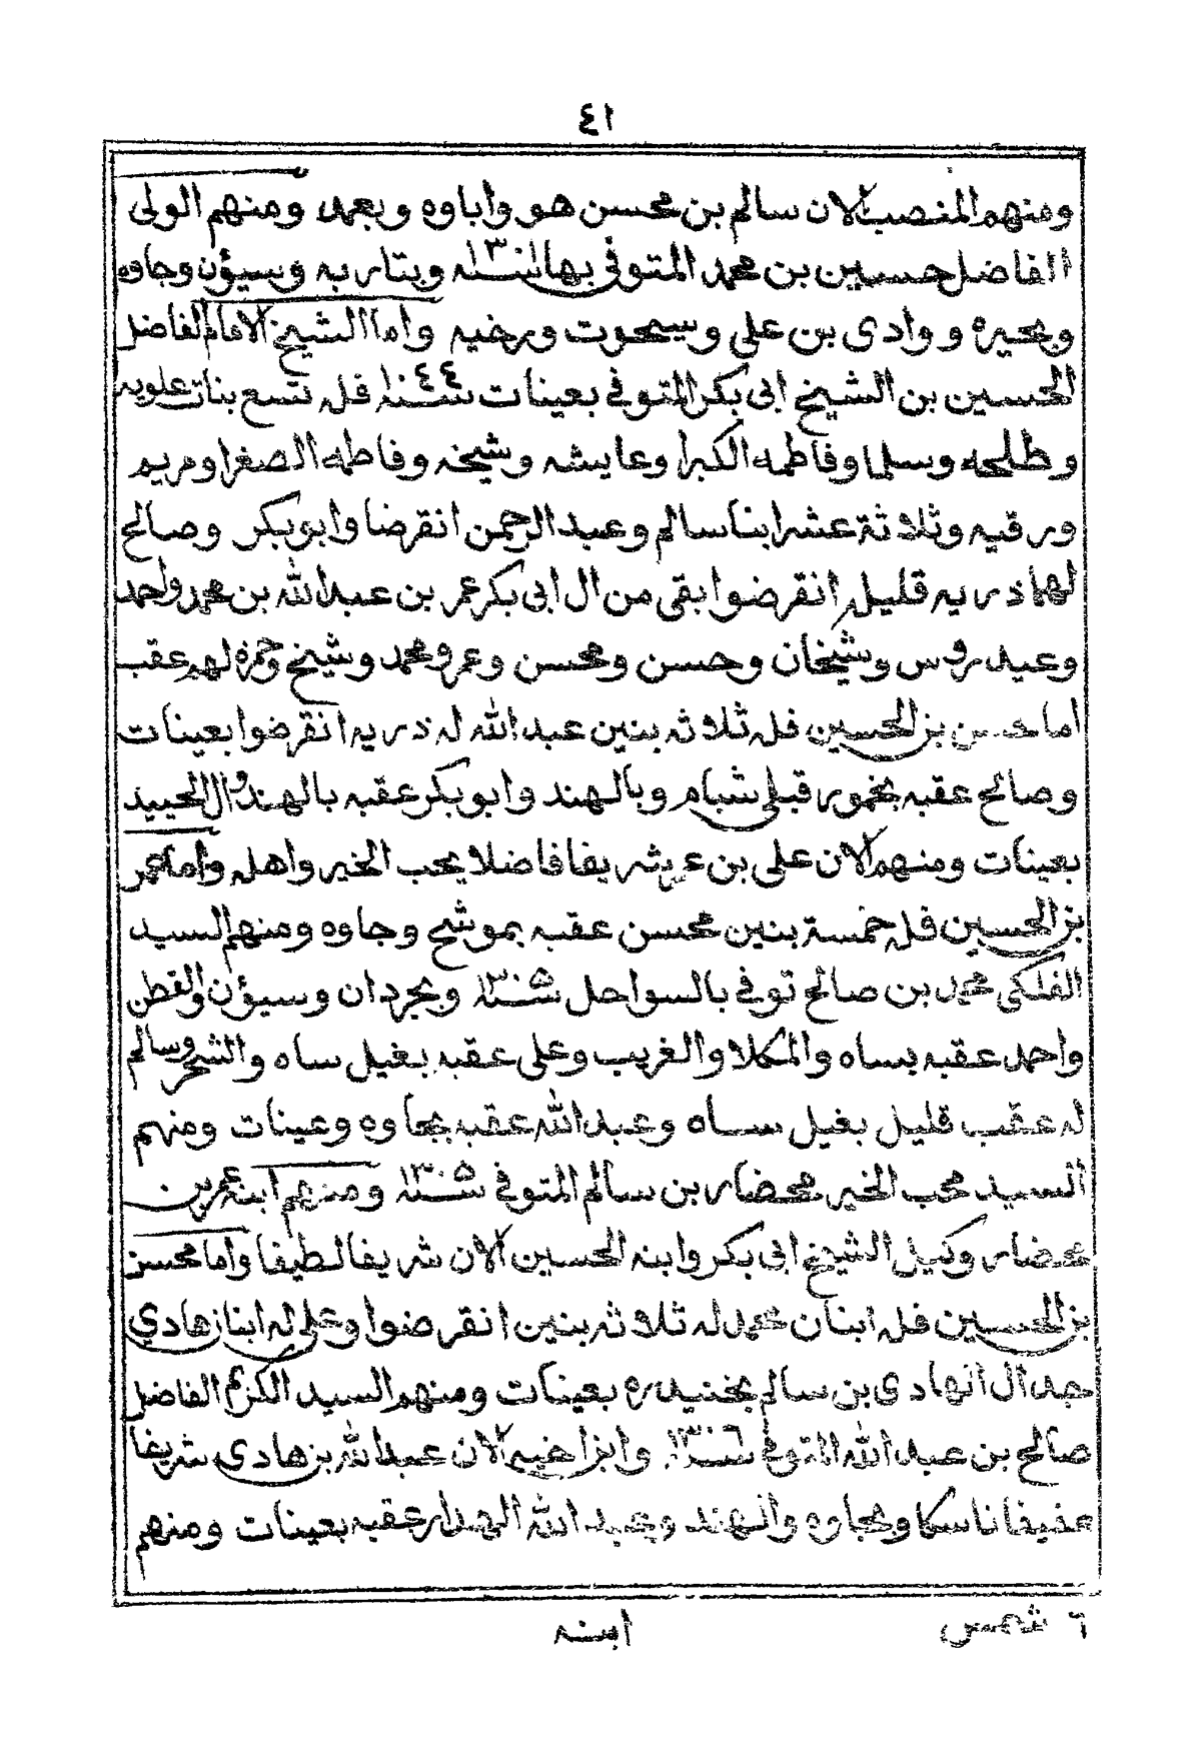 ٤١
ومنهم المنصب الان سالم بن محسن هو واباوه وبعمد ومنهم الولى
الفاضل حسين بن محمد المتوفي بها سنة وبتاربه وسيؤن وجاوه
وبحيره ووادى بن علي وسيحوت ورخيه واما الشيخ الامام الفاضل
الحسين بن الشيخ ابى بكر المتوفي بعينات سنة ١٠٤٤ فله تسع بنات علويه
وطلحه وسلما وفاطمه الكبرا وعايشه وشيخه وفاطمه الصغرا ومريم
ورقيه وثلاثة عشر ابنا سالم وعبد الرحمن انقرضا وابو بكر وصالح
لهما ذريه قليله انقرضوا بقى من ال ابى بكر عمر بن عبد الله بن محمد واحمد
وعيدروس وشيخان وحسن ومحسن وعمر ومحمد وشيخ وحمزه لهم عقب
اما حسن بن الحسين فله ثلاثه بنين عبد الله له ذريه انقرضوا بعينات
وصالح عقبه بخمور قبلي شبام وبالهند وابو بكر عقبه بالهند وال الحييد
بعينات ومنهم الان على بن شريفا فاضلا يحب الخير واهله واما عمر
بن الحسين فله خمسة بنين محسن عقبه بموشح وجاوه ومنهم السيد
الفلكى محمد بن صالح توفي بالسواحل سنة ١٣٠٥ وبجردان وسيؤن والقطن
واحمد عقبه بساه والمكلا والغريب وعلى عقبه بغيل ساه والشحر وسالم
له عقب قليل بغيل ساه وعبد الله عقبه بجاوه وعينات ومنهم
السيد محب الخير محضار بن سالم المتوفي سنة ١٣٠٥ ومنهم ابنه عمر بن
محضار وكيل الشيخ ابى بكر وابنه الحسين الان شريفا لطيفا واما محسن
بن الحسين فله ابنان محمد له ثلاثه بنين انقرضوا وعلى له ابنان هادي
جد ال الهادى بن سالم بخنيدره بعينات ومنهم السيد الكريم الفاضل
صالح بن عبد الله المتوفي سنة ١٣٠٦ وابن اخيه الان عبد الله بن هادى شريفا
عفيفا ناسكا وبجاوه والهند وعبد الله الهدار عقبه بعينات ومنهم
٦ شمس
ابنه